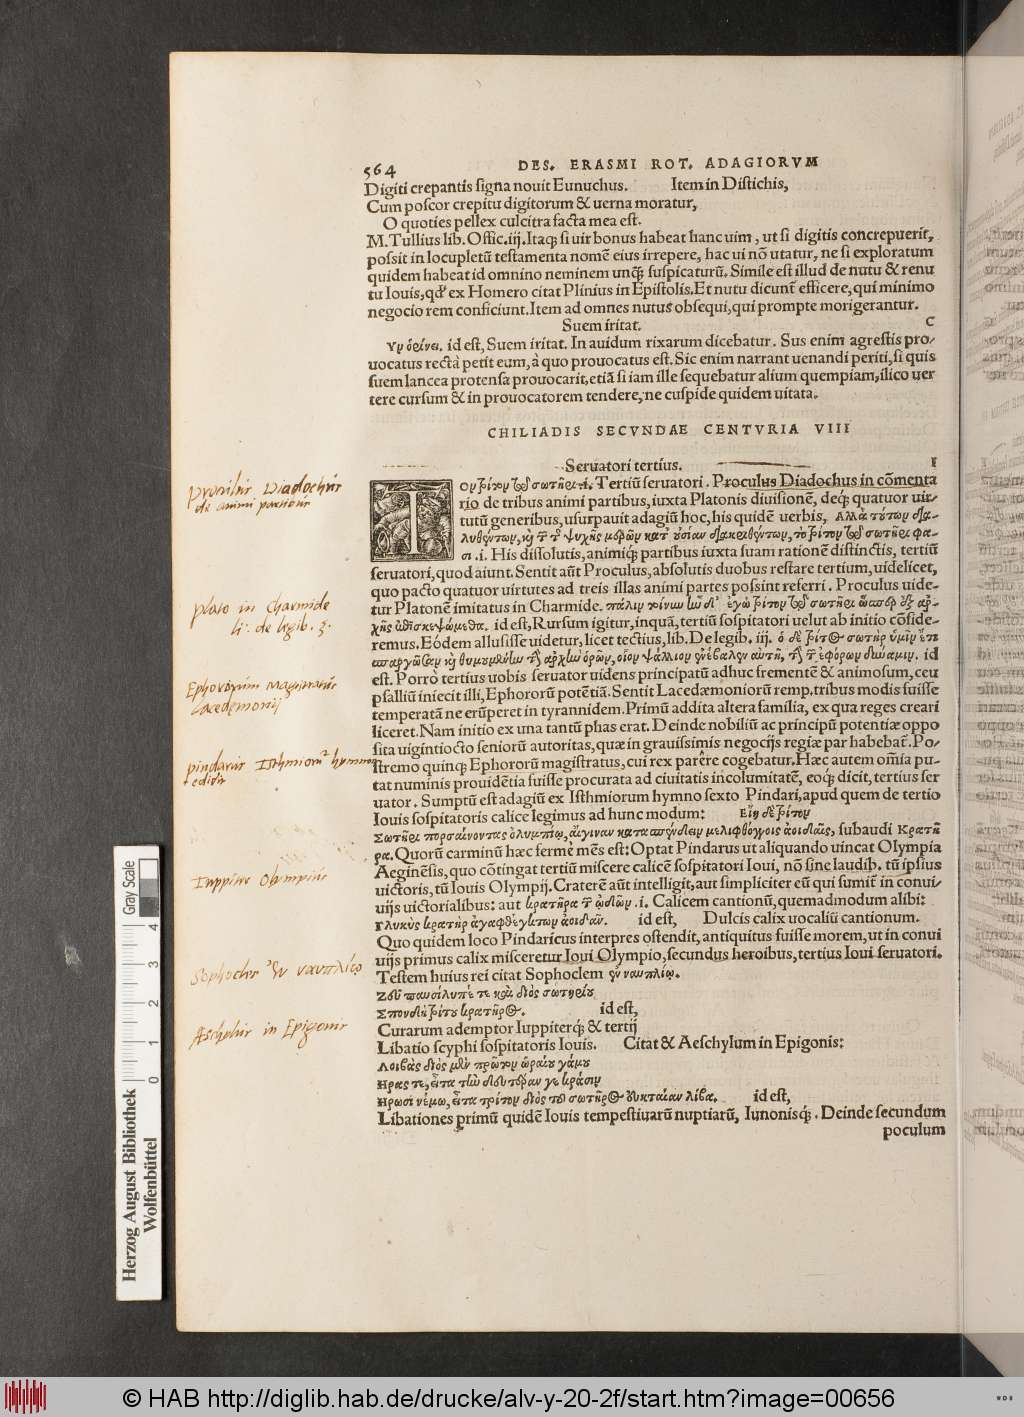 564 DES. ERASMI ROT. ADAGIORVM
Digiti crepantis signa nouit Eunuchus. Item in Distichis,
Cum poscor crepitu digitorum & uerna moratur,
O quoties pellex culcitra facta mea est.
M. Tullius lib. Offic. iij. Itaq; si uir bonus habeat hanc uim, ut si digitis concrepuerit,
possit in locupletū testamenta nomē eius irrepere, hac ui nō utatur, ne si exploratum
quidem habeat id omnino neminem unq̄ȝ suspicaturū. Simile est illud de nutu & renu
tu Iouis, qđ ex Homero citat Plinius in Epistolis. Et nutu dicunt̄ efficere, qui minimo
negocio rem conficiunt. Item ad omnes nutus obsequi, qui prompte morigerantur.
Suem irritat. C
Υν ὀρίνει. id est, Suem irritat. In auidum rixarum dicebatur. Sus enim agrestis pro-
uocatus rectà petit eum, à quo prouocatus est. Sic enim narrant uenandi periti, si quis
suem lancea protensa prouocarit, etiā si iam ille sequebatur alium quempiam, ilico uer
tere cursum & in prouocatorem tendere, ne cuspide quidem uitata.
CHILIADIS SECVNDAE CENTVRIA VIII
Seruatori tertius. I
ΤΟΥ τρίτου τῷ σωτῆρι .i. Tertiū seruatori. Proculus Diadochus in cōmenta
rio de tribus animi partibus, iuxta Platonis diuisionē, deq; quatuor uir-
tutū generibus, usurpauit adagiū hoc, his quidē uerbis, Αλλὰ τούτων δια-
λυθέντων, καὶ τ̃ τ̃ ψυχῆς μερῶν κατ᾽ οὐσίαν διακριθέντων, τὸ τρίτον τῷ σωτῆρι φα-
σι .i. His dissolutis, animiq; partibus iuxta suam rationē distinctis, tertiū
seruatori, quod aiunt. Sentit aūt Proculus, absolutis duobus restare tertium, uidelicet,
quo pacto quatuor uirtutes ad treis illas animi partes possint referri. Proculus uide-
tur Platonē imitatus in Charmide. πάλιν τοίνυν
id est, Rursum igitur, inquā, tertiū sospitatori uelut ab initio cōside-
remus. Eódem allusisse uidetur, licet tectius, lib. De legib. iij. ὁ δὲ τρίτος σωτὴρ ὑμῖν ἔτι
id
est. Porrò tertius uobis seruator uidens principatū adhuc frementē & animosum, ceu
psalliū iniecit illi, Ephororū potētiā. Sentit Lacedæmoniorū remp. tribus modis fuisse
temperatā ne erūperet in tyrannidem. Primū addita altera familia, ex qua reges creari
liceret. Nam initio ex una tantū phas erat. Deinde nobiliū ac principū potentiæ oppo
sita uigintiocto seniorū autoritas, quæ in grauissimis negocijs regiæ par habebat̄. Po-
stremo quinq; Ephororū magistratus, cui rex parēre cogebatur. Hæc autem omīa pu-
tat numinis prouidētia fuisse procurata ad ciuitatis incolumitatē, eoq; dicit, tertius ser
uator. Sumptū est adagiū ex Isthmiorum hymno sexto Pindari, apud quem de tertio
Iouis sospitatoris calice legimus ad hunc modum: Εἴη δὲ τρίτον
Σωτῆρι πορσαίνοντας ὀλυμπίῳ, αἴγιναν κατασπένδειν μελιφθόγγοις ἀοιδαῖς, subaudi Κρατῆ
ρα. Quorū carminū hæc fermè mēs est: Optat Pindarus ut aliquando uincat Olympia
Aeginēsis, quo cōtingat tertiū miscere calicē sospitatori Ioui, nō sine laudib. tū ipsius
uictoris, tū Iouis Olympij. Craterē aūt intelligit, aut simpliciter eū qui sumit̄ in conui-
uijs uictorialibus: aut κρατῆρα τ̃ ᾠδῶν .i. Calicem cantionū, quemadmodum alibi:
Γλυκὺς κρατὴρ ἀγαφθέγκτων ἀοιδᾶν. id est, Dulcis calix uocaliū cantionum.
Quo quidem loco Pindaricus interpres ostendit, antiquitus fuisse morem, ut in conui
uijs primus calix misceretur Ioui Olympio, secundus heroibus, tertius Ioui seruatori.
Testem huius rei citat Sophoclem ἐν ναυπλίῳ.
Ζεῦ παυσίλυπε τε καὶ διὸς σωτηρίου
Σπονδὴ τρίτου κρατῆρος. id est,
Curarum ademptor Iuppiterq; & tertij
Libatio scyphi sospitatoris Iouis. Citat & Aeschylum in Epigonis:
Λοιβὰς διὸς μὲν πρῶτον ὡραίου γάμου
Ηρας τε, εἶτα τὴν δευτέραν γε κρᾶσιν
Ηρωσι νέμω, εἶτα τρίτον διὸς τοῦ σωτῆρος εὐκταίαν λίβα. id est,
Libationes primū quidē Iouis tempestiuarū nuptiarū, Iunonisq;. Deinde secundum
poculum
Proculus Diadochus
de animi partibus
Plato in Charmide
li. de legib. 3.
Ephororum Magistratus
Lacedemonij
pindarus Isthmiorum hymnos
edidit
Iuppiter Olympius
Sophocles ἐν ναυπλίῳ
Æschylus in Epigonis
Herzog August Bibliothek
Wolfenbüttel
0 1 2 3 4
Gray Scale
© HAB http://diglib.hab.de/drucke/alv-y-20-2f/start.htm?image=00656